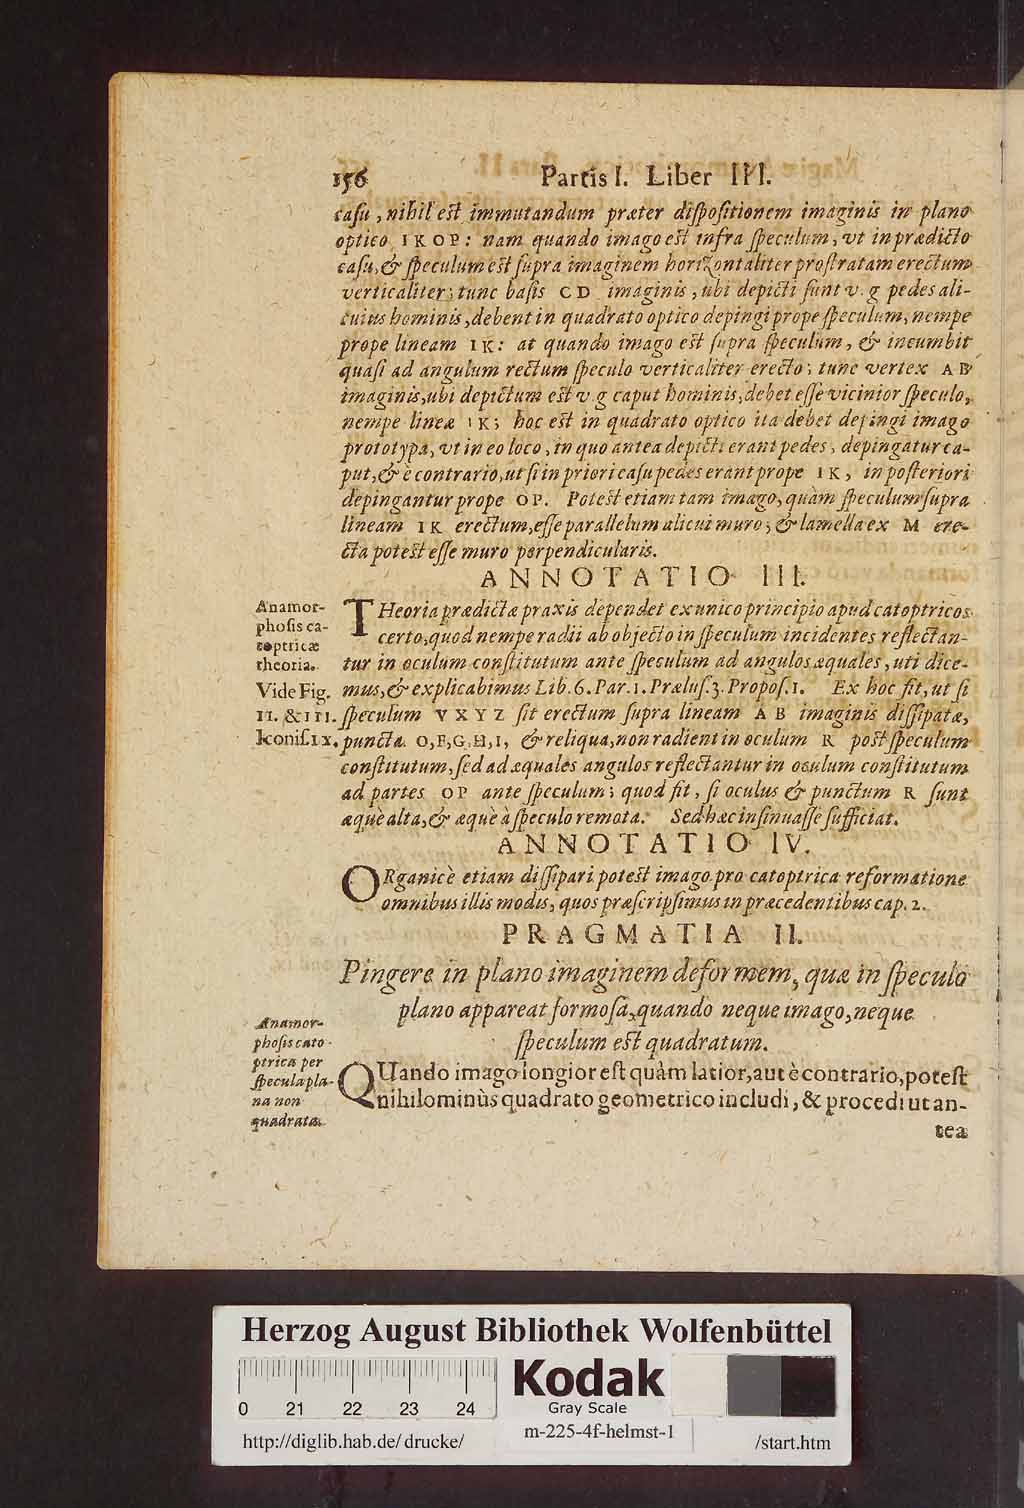 156 Partis I. Liber III.
casu, nihil est immutandum præter dispositionem imaginis in plano
optico IKOP: nam quando imago est infra speculum, vt in prædicto
casu, & speculum est supra imaginem horizontaliter prostratam erectum
verticaliter; tunc basis CD imaginis, ubi depicti sunt v. g pedes ali-
cuius hominis, debent in quadrato optico depingi prope speculum, nempe
prope lineam IK: at quando imago est supra speculum, & incumbit
quasi ad angulum rectum speculo verticaliter erecto; tunc vertex AB
imaginis, ubi depictum est v. g caput hominis, debet esse vicinior speculo,
nempe lineæ IK; hoc est in quadrato optico ita debet depingi imago
prototypa, vt in eo loco, in quo antea depicti erant pedes, depingatur ca-
put, & è contrario, ut si in priori casu pedes erant prope IK, in posteriori
depingantur prope OP. Potest etiam tam imago, quàm speculum supra
lineam IK erectum, esse parallelum alicui muro; & lamella ex M ere-
cta potest esse muro perpendicularis.
ANNOTATIO III.
Anamor-
phosis ca-
toptricæ
theoria.
Vide Fig.
II. & III.
Iconis. IX.
THeoria prædictæ praxis dependet ex unico principio apud catoptricos
certo, quod nempe radii ab objecto in speculum incidentes reflectan-
tur in oculum constitutum ante speculum ad angulos æquales, uti dice-
mus, & explicabimus Lib. 6. Par. 1. Prælus. 3. Propos. 1. Ex hoc fit, ut si
speculum VXYZ sit erectum supra lineam AB imaginis dissipatæ,
puncta O, F, G, H, I, & reliqua, non radient in oculum R post speculum
constitutum, sed ad æquales angulos reflectantur in oculum constitutum
ad partes OP ante speculum; quod fit, si oculus & punctum R sunt
æquè alta, & æquè à speculo remota. Sed hæc insinuasse sufficiat.
ANNOTATIO IV.
ORganicè etiam dissipari potest imago pro catoptrica reformatione
omnibus illis modis, quos præscripsimus in præcedentibus cap. 2.
PRAGMATIA II.
Pingere in plano imaginem deformem, quæ in speculo
plano appareat formosa, quando neque imago, neque
speculum est quadratum.
Anamor-
phosis cato-
ptrica per
specula pla-
na non
quadrata.
QUando imago longior est quàm latior, aut è contrario, potest
nihilominùs quadrato geometrico includi, & procedi ut an-
tea
Herzog August Bibliothek Wolfenbüttel
0 21 22 23 24
Kodak
Gray Scale
http://diglib.hab.de/drucke/
m-225-4f-helmst-1
/start.htm